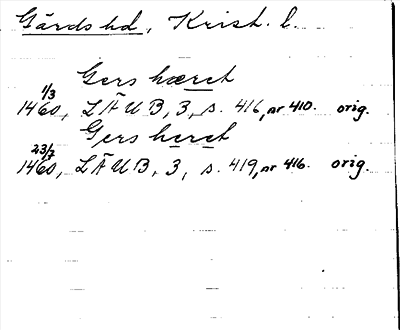 Gärds hd, Krist. l.
Gers hæret
1/3
1460, LÄUB, 3, s. 416, nr 410. orig.
Gers heret
23/7
1460, LÄUB, 3, s. 419, nr 416. orig.